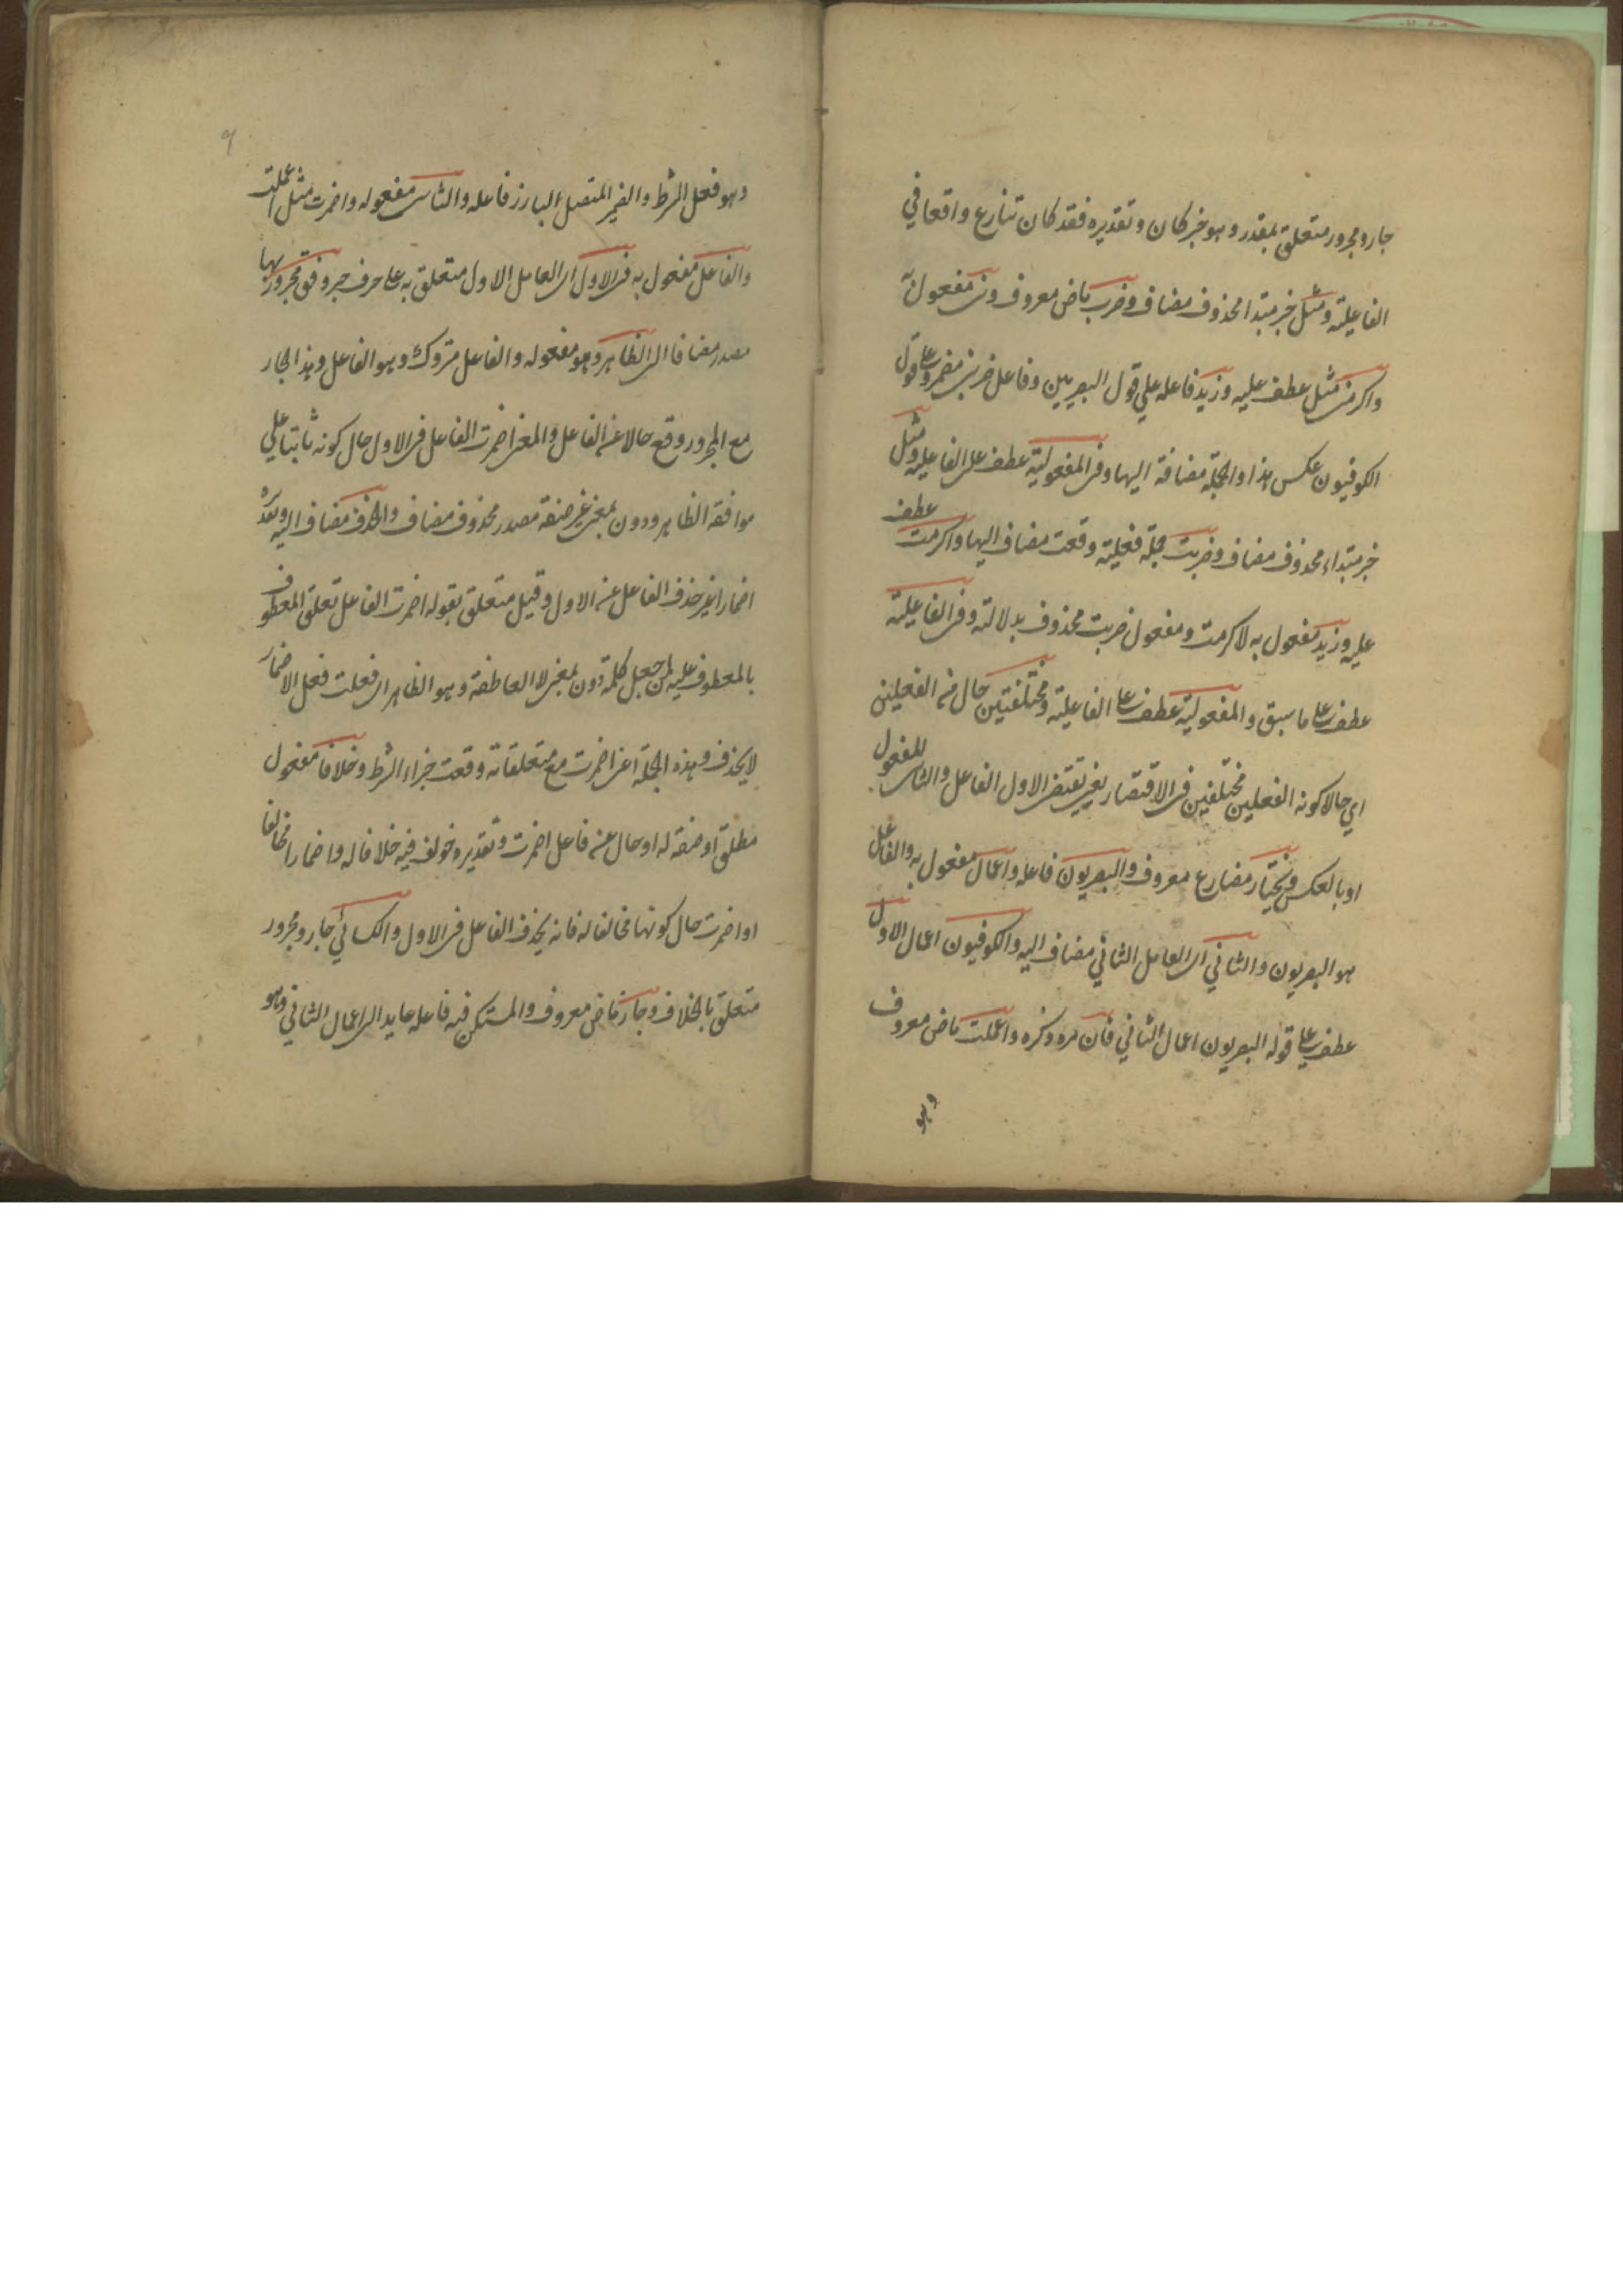 جار ومجرور متعلق بمقدر وهو خبر كان وتقديره فقد كان تنازع واقعا في
الفاعلية ومثل خبر مبتدا محذوف مضاف وضرب ماض معروف وني مفعول به
واكرمني مثل عطف عليه وزيد فاعله علي قول البصريين وفاعل ضربني مضمر وعلي قول
الكوفيون عكس هذا والجملة مضافة اليها وفي المفعولية عطف على الفاعلية ومثل
خبر مبتداء محذوف مضاف وضربت جملة فعلية وقعت مضاف اليها واكرمت عطف
عليه وزيد مفعول به لاكرمت ومفعول ضربت محذوف بدلالته وفي الفاعلية
عطف على ما سبق والمفعولية عطف على الفاعلية ومختلفتين حال من الفعلين
اي حالا كونه الفعلين مختلفين في الاقتصار يعني يقتضي الاول الفاعل والثاني المفعول
او بالعكس فيختار مضارع معروف والبصريون فاعله واعمال مفعول به والفاعل
هو البصريون والثاني اي العامل الثاني مضاف اليه والكوفيون اعمال الاول
عطف على قوله البصريون اعمال الثاني فان مر ذكره واعملت ماض معروف
وهو
وهو فعل الشرط والضمير المتصل البارز فاعله والثاني مفعوله واضمرت مثل اعملت
والفاعل مفعول به في الاول اي العامل الاول متعلق به على حرف جر وفق مجرور بها
مصدر مضافا الى الظاهر وهو مفعوله والفاعل متروك وهو الفاعل وهذا الجار
مع المجرور وقع حالا عن الفاعل والمعنى اضمرت الفاعل في الاول حال كونه ثابتا علي
موافقة الظاهر ودون بمعنى غير صفة مصدر محذوف مضاف والحذف مضاف اليه وتقديره
اضمارا غير حذف الفاعل عن الاول وقيل متعلق بقوله اضمرت الفاعل تعلق المعطوف
بالمعطوف عليه لمن جعل كلمة دون بمعنى لا العاطفة وهو الظاهر اي فعلت فعل الاضمار
لا يحذف وهذه الجملة اعني اضمرت مع متعلقاته وقعت جزاء الشرط وخلافا مفعول
مطلق او صفة له او حال عن فاعل اضمرت وتقديره خولف فيه خلافا له واضمارا مخالفا
او اضمرت حال كونها مخالفا له فانه يحذف الفاعل في الاول والكسائي جار ومجرور
متعلق بالخلاف وجاز ماض معروف والمستكن فيه فاعله عايد الى اعمال الثاني وهو